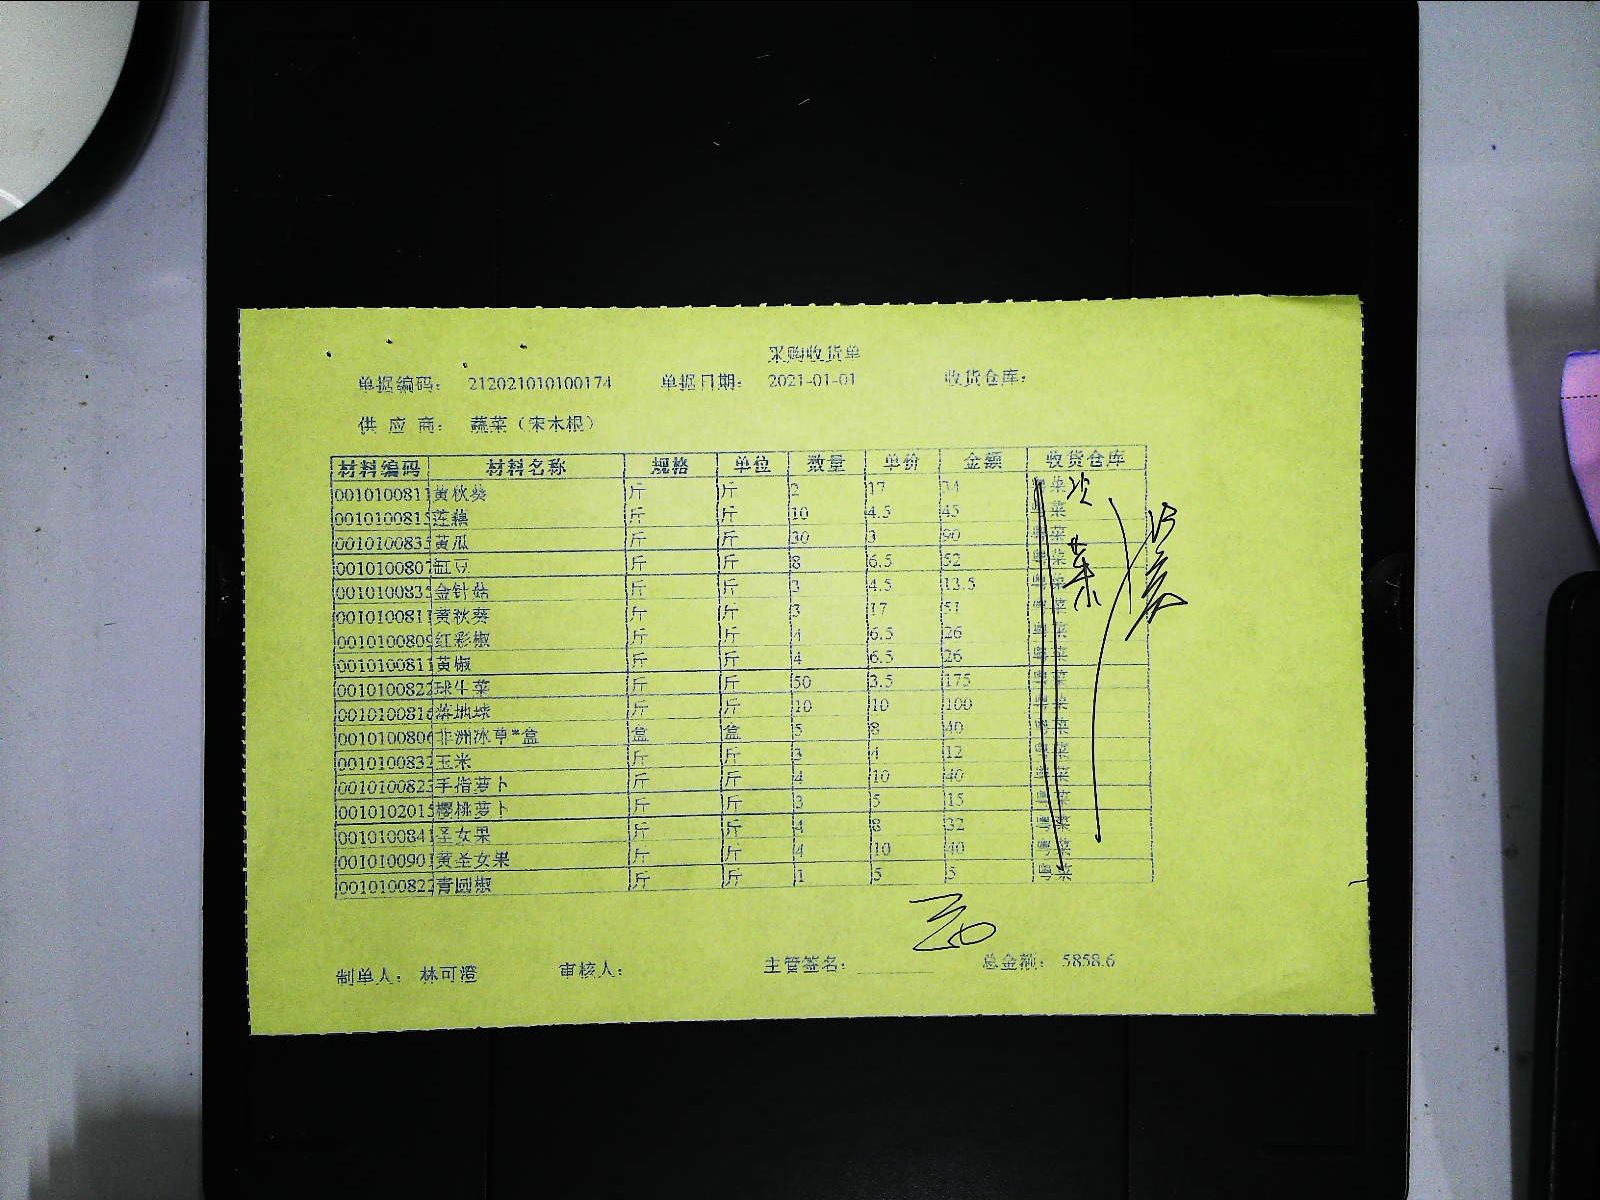 采购收货单
单据编码： 212021010100174 单据日期： 2021-01-01 收货仓库：
供 应 商： 蔬菜（宋木根）
材料编码 材料名称 规格 单位 数量 单价 金额 收货仓库
0010100811 黄秋葵 斤 斤 2 17 34 粤菜
0010100815 莲藕 斤 斤 10 4.5 45 粤菜
0010100833 黄瓜 斤 斤 30 3 90 粤菜
0010100807 缸豆 斤 斤 8 6.5 52 粤菜
0010100835 金针菇 斤 斤 3 4.5 13.5 粤菜
0010100811 黄秋葵 斤 斤 3 17 51 粤菜
0010100809 红彩椒 斤 斤 4 6.5 26 粤菜
0010100811 黄椒 斤 斤 4 6.5 26 粤菜
0010100822 球生菜 斤 斤 50 3.5 175 粤菜
0010100816 落地球 斤 斤 10 10 100 粤菜
0010100806 非洲冰草*盒 盒 盒 5 8 40 粤菜
0010100832 玉米 斤 斤 3 4 12 粤菜
0010100823 手指萝卜 斤 斤 4 10 40 粤菜
0010102015 樱桃萝卜 斤 斤 3 5 15 粤菜
0010100841 圣女果 斤 斤 4 8 32 粤菜
0010100901 黄圣女果 斤 斤 4 10 40 粤菜
0010100822 青圆椒 斤 斤 1 5 5 粤菜
制单人： 林可澄 审核人： 主管签名： 总金额： 5858.6